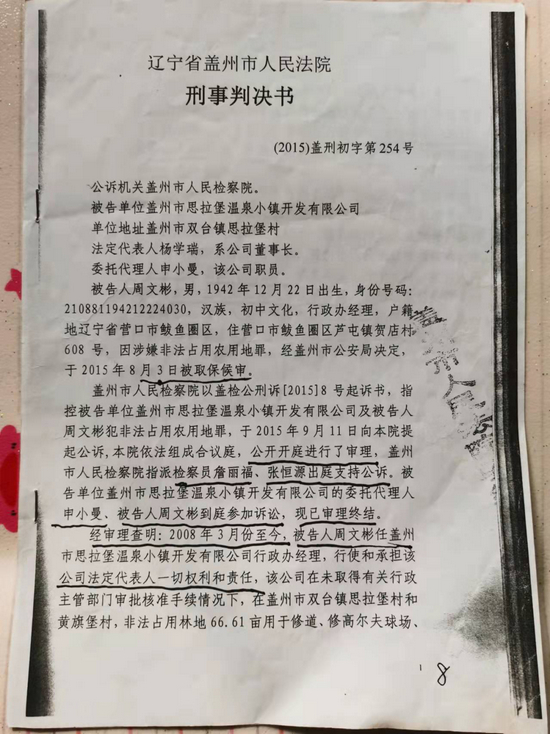 辽宁省盖州市人民法院
刑事判决书
(2015)盖刑初字第254号
公诉机关盖州市人民检察院。
被告单位盖州市思拉堡温泉小镇开发有限公司
单位地址盖州市双台镇思拉堡村
法定代表人杨学瑞，系公司董事长。
委托代理人申小曼，该公司职员。
被告人周文彬，男，1942年12月22日出生，身份号码：
210881194212224030，汉族，初中文化，行政办经理，户籍
地辽宁省营口市鲅鱼圈区，住营口市鲅鱼圈区芦屯镇贺店村
608号，因涉嫌非法占用农用地罪，经盖州市公安局决定，
于2015年8月3日被取保侯审。
盖州市人民检察院以盖检公刑诉[2015]8号起诉书，指
控被告单位盖州市思拉堡温泉小镇开发有限公司及被告人
周文彬犯非法占用农用地罪，于2015年9月11日向本院提
起公诉，本院依法组成合议庭，公开开庭进行了审理，盖州
市人民检察院指派检察员詹丽福、张恒源出庭支持公诉。被
告单位盖州市思拉堡温泉小镇开发有限公司的委托代理人
申小曼、被告人周文彬到庭参加诉讼，现已审理终结。
经审理查明：2008年3月份至今，被告人周文彬任盖州
市思拉堡温泉小镇开发有限公司行政办经理，行使和承担该
公司法定代表人一切权利和责任，该公司在未取得有关行政
主管部门审批核准手续情况下，在盖州市双台镇思拉堡村和
黄旗堡村，非法占用林地66.61亩用于修道、修高尔夫球场、
8
盖州市人民